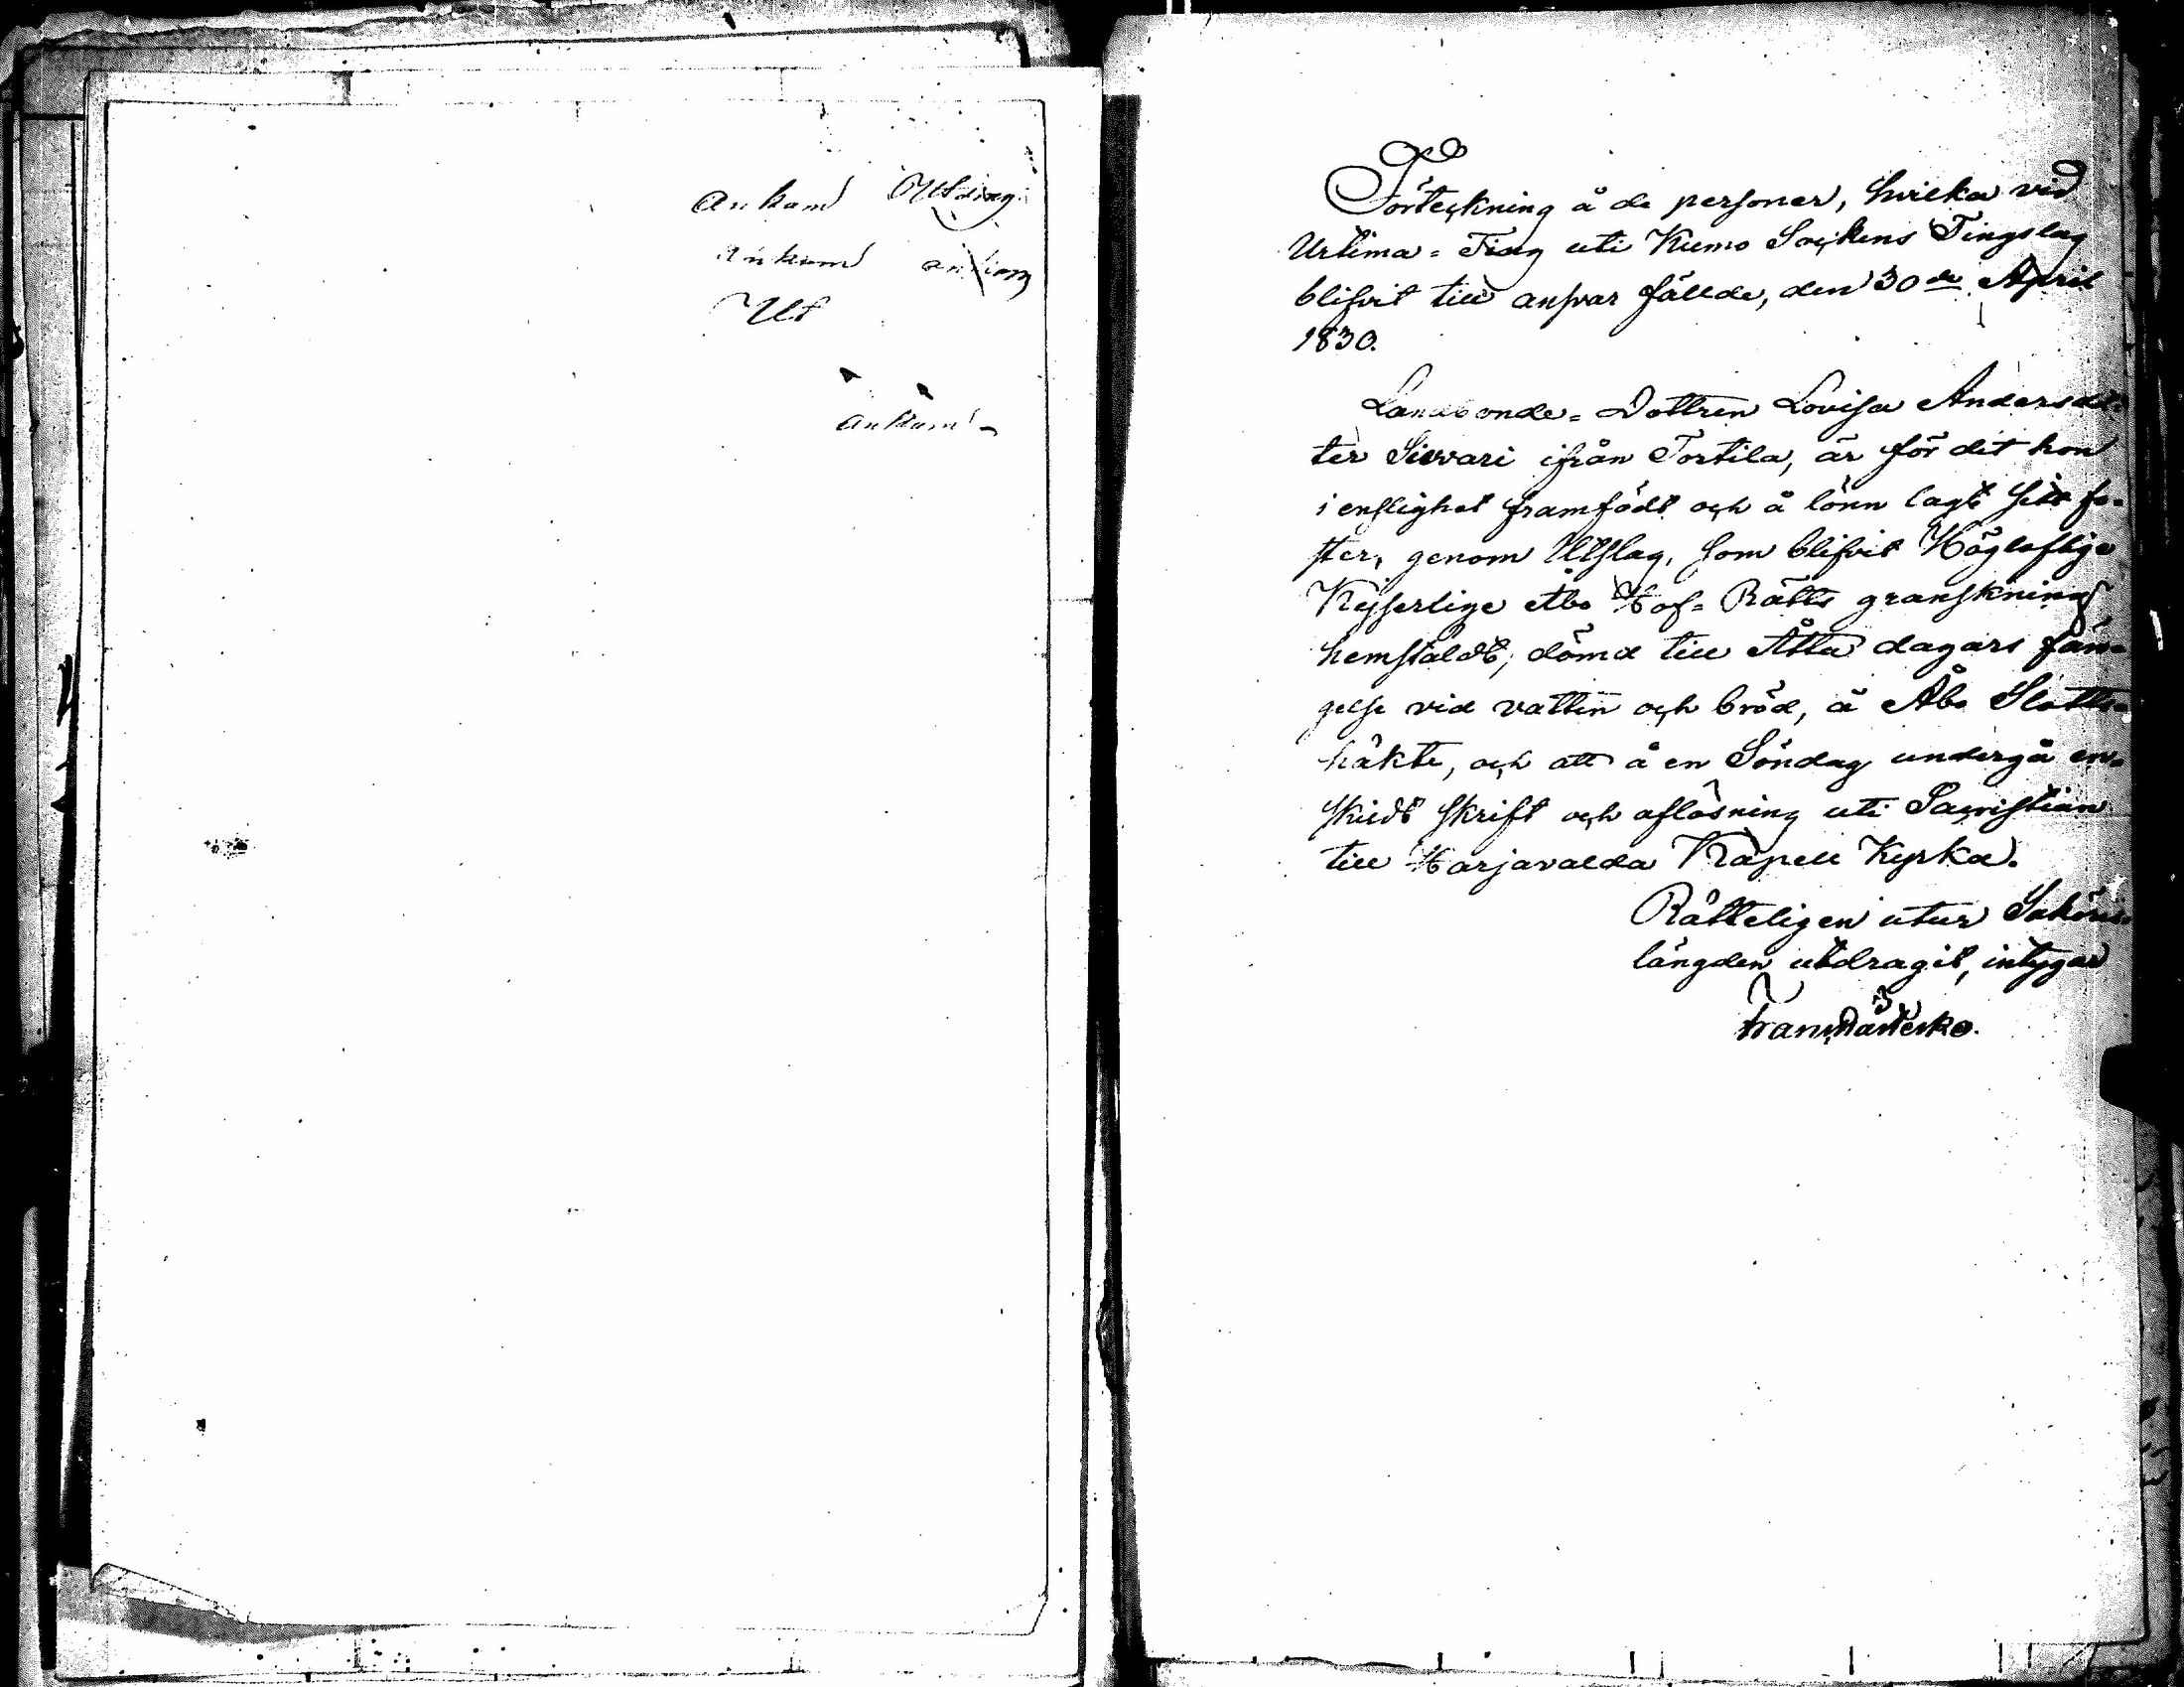 ankom
ankom
Ut
ankom
Förteckning å de personer, hvilka vid
Urtima=Ting uti Kumo Sockens Tingslag
blifvit till ansvar fällde, den 30de April
1830.
Landbonde=Dottren Lovisa Andersdot=
ter Sievari ifrån Torttila, är för det hon
i enslighet framfödt och å lönn lagt sitt fo=
ster, genom Utslag, som blifvit Högloflige
Kejserlige Åbo Hof=Rätts granskning
hemstäldt, dömd till Åtta dagars fän=
gelse vid vatten och bröd, å Åbo Slotts=
häkte, och att å en Söndag undergå en=
skildt skrift och aflösning uti Sacristian
till Harjavalda Kapell Kyrka.
Rätteligen utur Saköres
längden utdragit, intygar